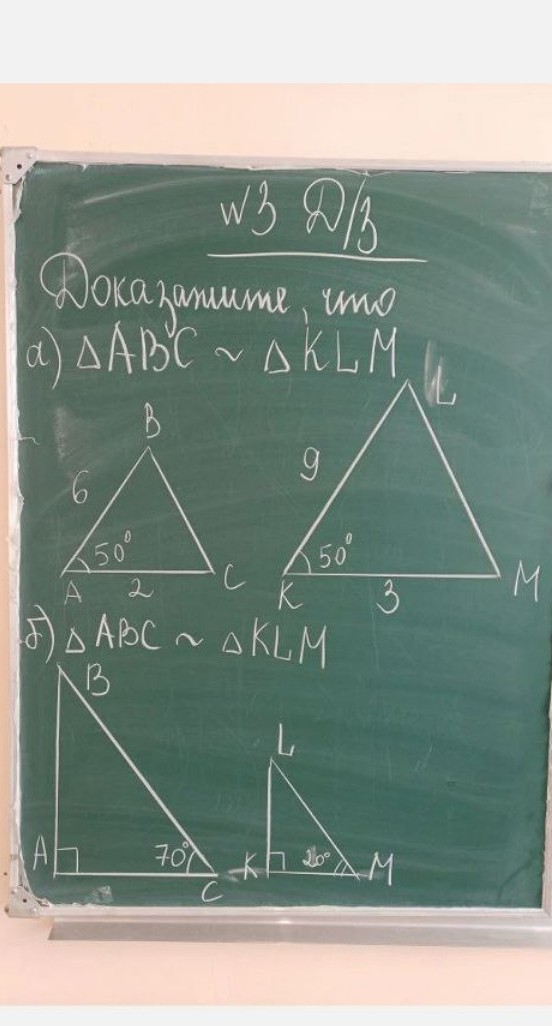 №3 Д/з
Докажите, что
а) △ABC ~ △KLM
B
L
6
9
50°
50°
A
2
C
K
3
M
б) △ABC ~ △KLM
B
L
A
70°
C
K
20°
M